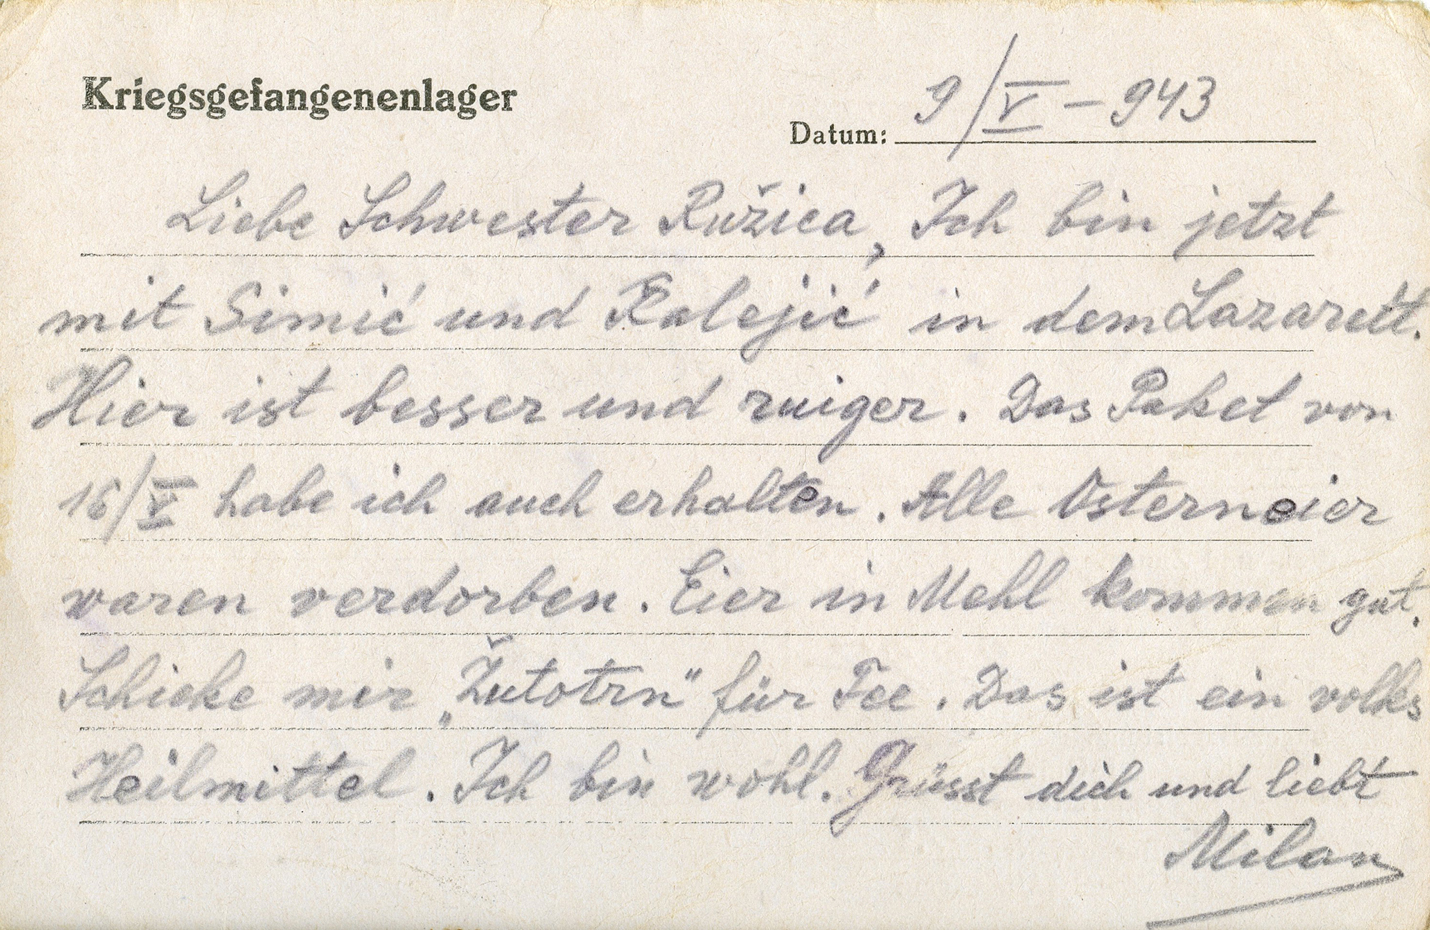 Kriegsgefangenenlager
Datum: 9/V – 943
Liebe Schwester Ružica, Ich bin jetzt
mit Simić und Kalejić in dem Lazarett.
Hier ist besser und ruiger. Das Paket von
16/V habe ich auch erhalten. Alle Osterneier
waren verdorben. Eier in Mehl kommen gut.
Schicke mir „Žutotrn" für Tee. Das ist ein volks
Heilmittel. Ich bin wohl. Grüsst dich und liebt
Milan